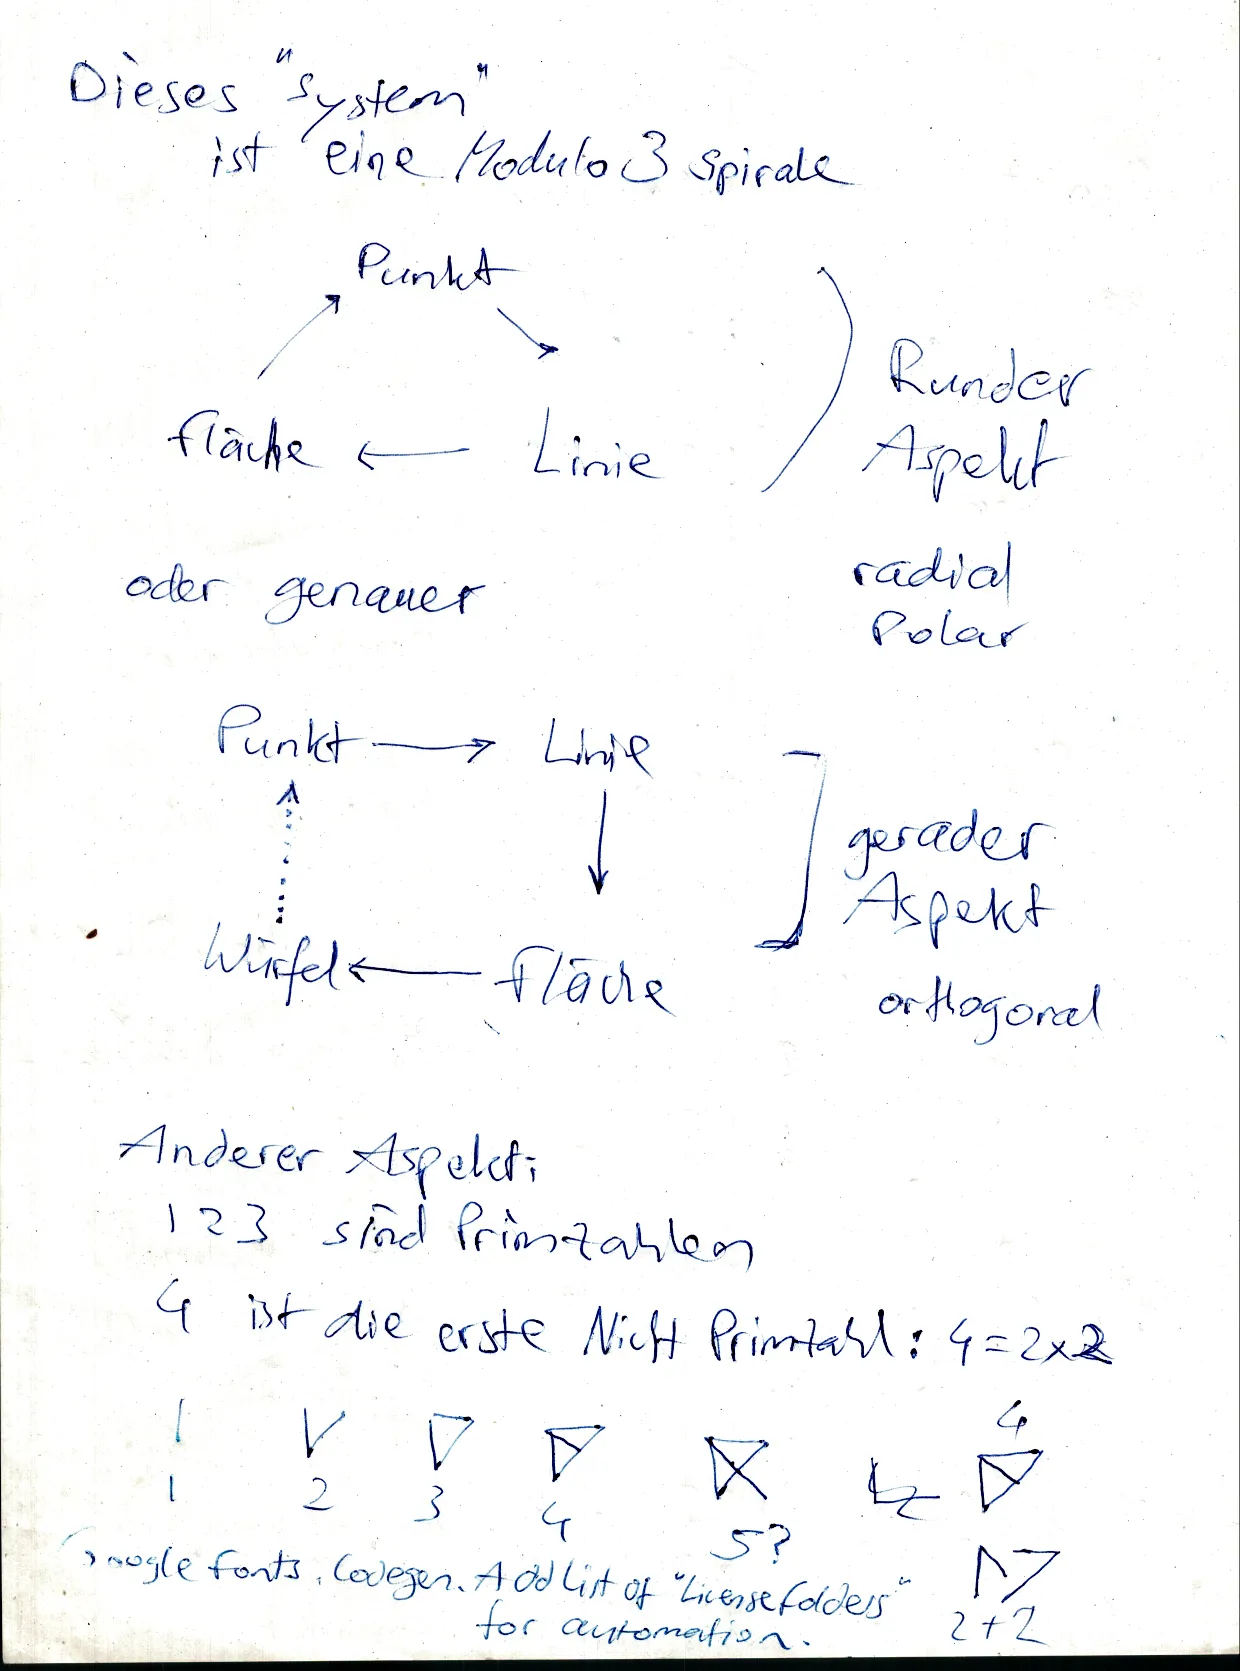 Dieses "System"
ist eine Modulo 3 Spirale
Punkt
Fläche
Linie
Runder
Aspekt
radial
Polar
oder genauer
Punkt
Linie
Würfel
Fläche
gerader
Aspekt
orthogonal
Anderer Aspekt:
1 2 3 sind Primzahlen
4 ist die erste Nicht Primzahl: 4 = 2 x 2
1
2
3
4
5?
4
2 + 2
Google Fonts. Codegen. Add List of "License folders"
for automation.